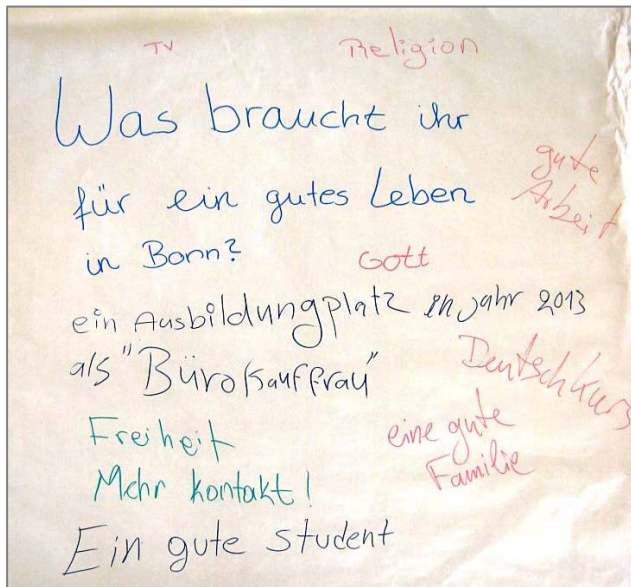 TV
Religion
Was braucht ihr
für ein gutes Leben
in Bonn?
gute
Arbeit
Gott
ein Ausbildungplatz in jahr 2013
als "Bürokauffrau"
Deutschkurs
eine gute
Familie
Freiheit
Mehr kontakt!
Ein gute student